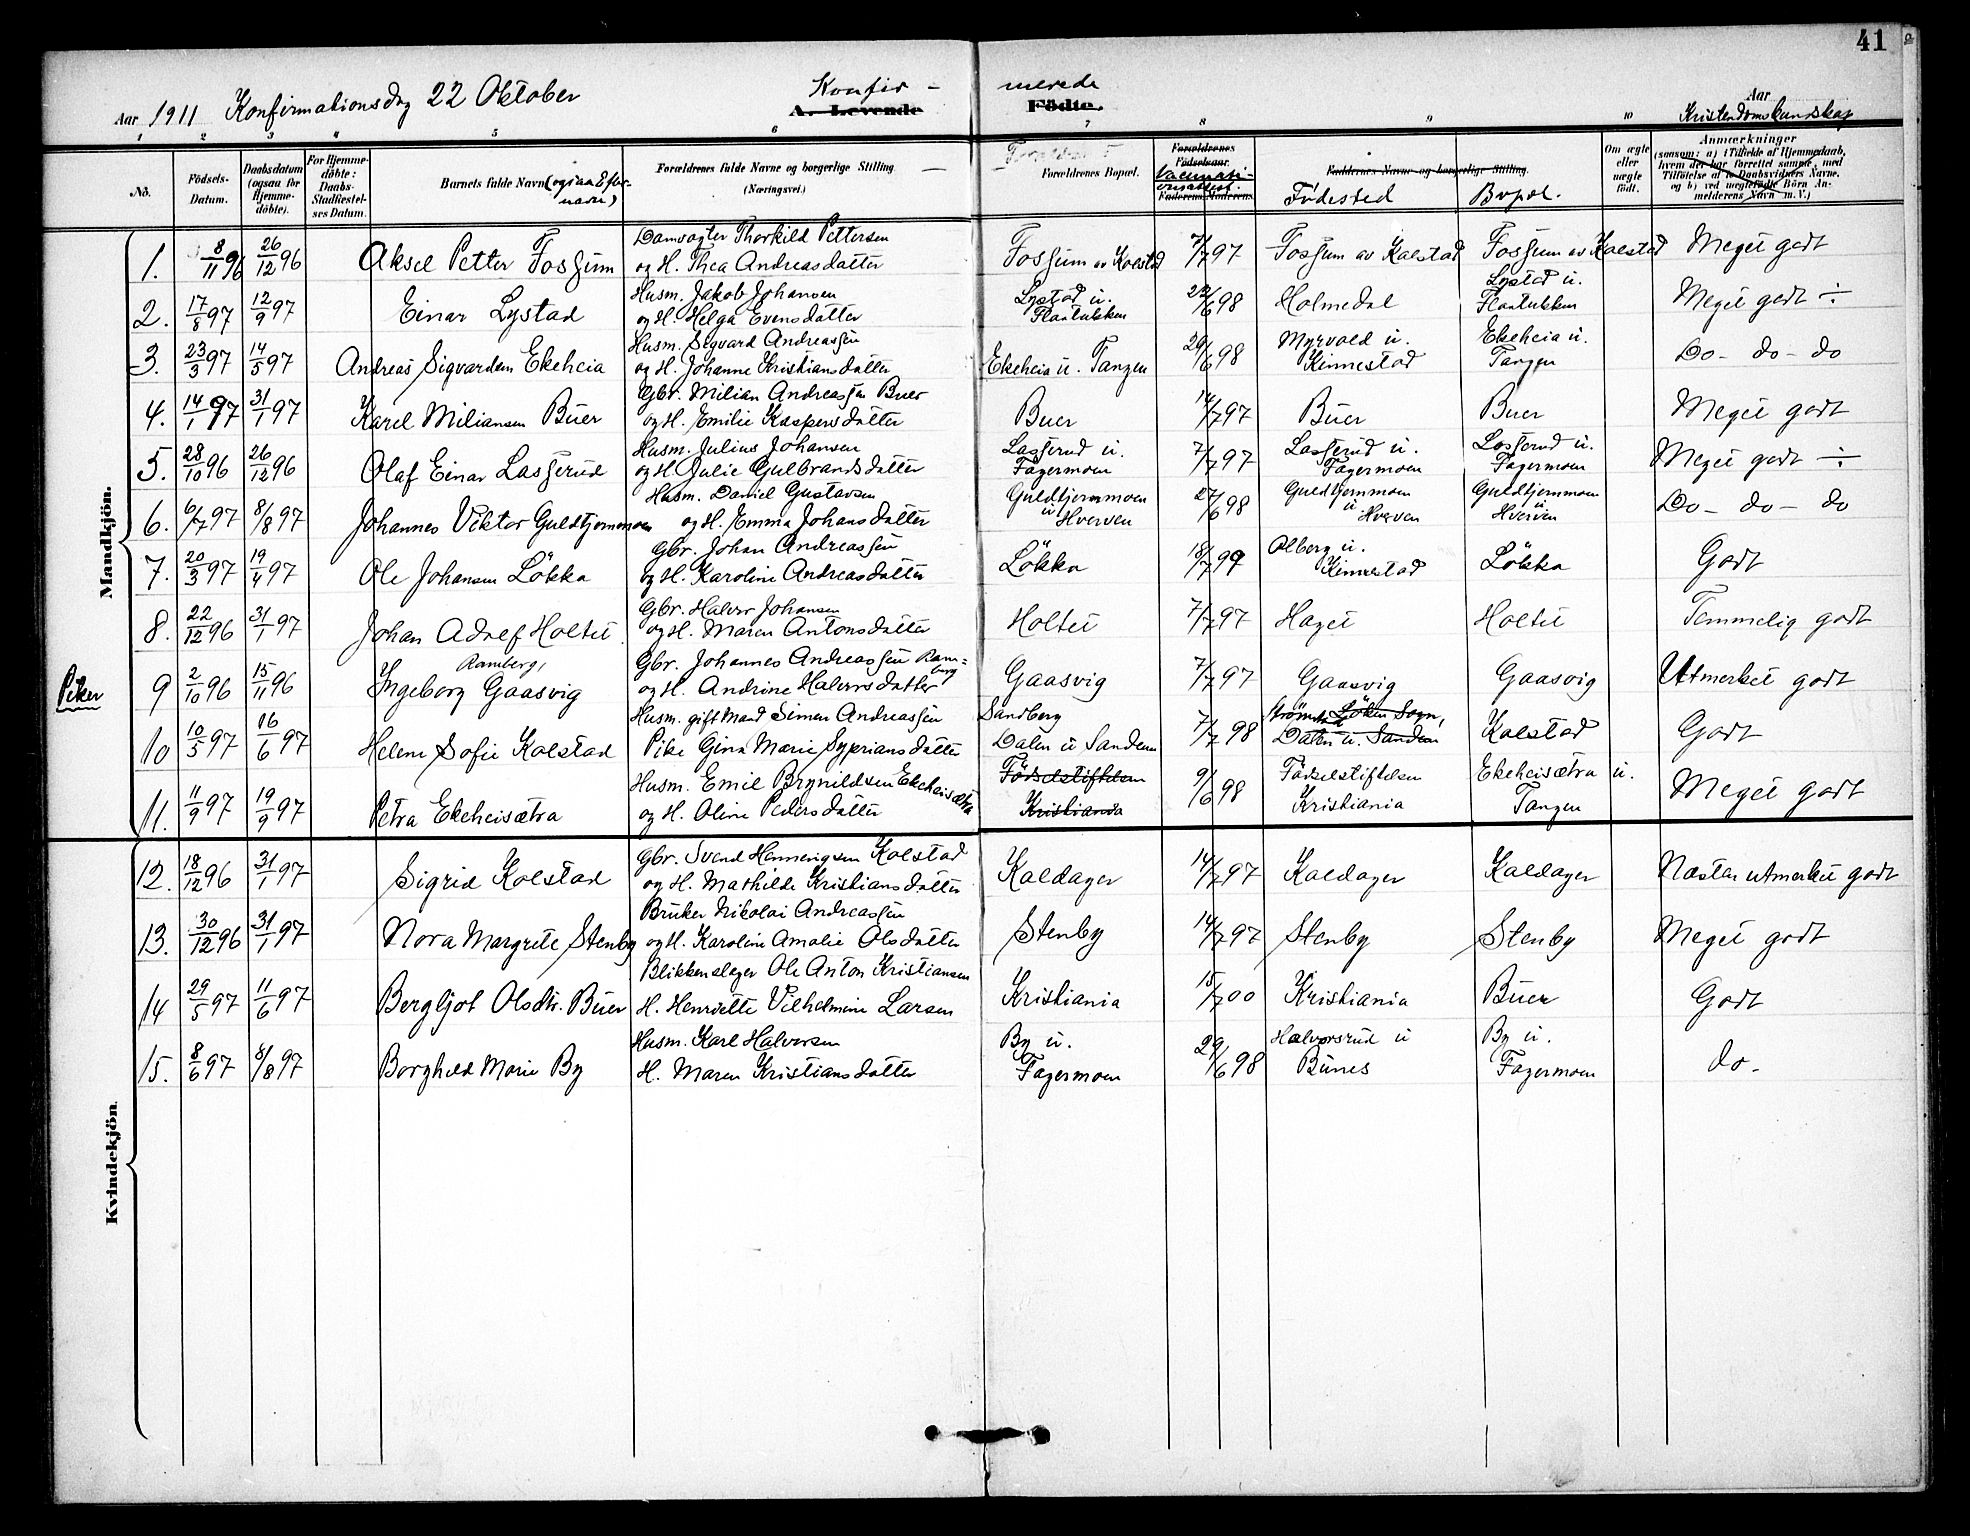 41
Aar 1911 Konfirmationsdag 22 Oktober Konfir- merede Aar
A. Levende Födte. Kristendomskundskap
1 2 3 4 5 6 7 8 9 10
No. Födsels-Datum. Daabsdatum (ogsaa for Hjemme-döbte). For Hjemme-döbte: Daabs-Stadfæstel-ses Datum. Barnets fulde Navn (ogsaa Efter-navn) Forældrenes fulde Navne og borgerlige Stilling (Næringsvei.) Forældrenes Bopæl. Forældrenes Födselsaar. Vaccinati-onsattest. Faderens Moderens Faddernes Navne og borgerlige Stilling. Födested Bopæl. Om ægte eller uægte födt. Anmærkninger (saasom: a) i Tilfælde af Hjemmedaab, hvem der har forrettet samme, med Tilföielse af to Daabsvidners Navne, og b) ved uægtefödte Börn An-melderens Navn m. V.)
Mandkjön.
1. 8/11 96 26/12 96 Aksel Petter Fossum Damvogter Thorkild Pettersen og H. Thea Andreasdatter Fossum av Kolstad 7/7 97 Fossum av Kolstad Fossum av Kolstad Meget godt
2. 17/8 97 12/9 97 Einar Lystad Husm. Jakob Johansen og H. Helga Evensdatter Lystad u. Flaatukken 22/6 98 Holmedal Lystad u. Flaatukken Meget godt ÷
3. 23/3 97 14/5 97 Andreas Sigvardsen Ekeheia Husm. Sigvard Andreassen og H. Johanne Kristiansdatter Ekeheia u. Tangen 29/6 98 Myrvold u. Kinnestad Ekeheia u. Tangen Do - do - do
4. 14/1 97 31/1 97 Karel Miliansen Buer Gbr. Milian Andreassen Buer og H. Emilie Kaspersdatter Buer 14/7 97 Buer Buer Meget godt
5. 28/10 96 26/12 96 Olaf Einar Lasserud Husm. Julius Johansen og H. Julie Gulbrandsdatter Lasserud u. Fagermoen 7/7 97 Lasserud u. Fagermoen Lasserud u. Fagermoen Meget godt ÷
6. 6/7 97 8/8 97 Johannes Viktor Guldtjernmoen Husm. Daniel Gustavsen og H. Emma Johansdatter Guldtjernmoen u Hverven 27/6 98 Guldtjernmoen u Hverven Guldtjernmoen u Hverven Do - do - do
7. 20/3 97 19/4 97 Ole Johansen Lökka Gbr. Johan Andreassen og H. Karoline Andreasdatter Lökka 18/7 99 Olberg u. Kinnestad Lökka Godt
8. 22/12 96 31/1 97 Johan Adolf Holtet Gbr. Halvor Johansen og H. Maren Antonsdatter Holtet 7/7 97 Haget Holtet Temmelig godt
Piker
9 2/10 96 15/11 96 Ingeborg Ramberg, Gaasvig Gbr. Johannes Andreassen Ramberg og H. Andrine Halvorsdatter Gaasvig 7/7 97 Gaasvig Gaasvig Utmerket godt
10 10/5 97 16/6 97 Helene Sofie Kolstad Husm. gift Mand Simen Andreassen Sandberg Pike Gina Marie Sypriansdatter Dalen u Sandem 7/7 98 Strömstad Löken Sogn, Dalen u. Sandem Kolstad Godt
11. 11/9 97 19/9 97 Petra Ekeheisætra Husm. Emil Brynildsen Ekeheisætra og H. Oline Pedersdatter Födselstiftelsen Kristiania 9/6 98 Födselstiftelsen Kristiania Ekeheisætra u. Tangen Meget godt
Kvindekjön
12. 18/12 96 31/1 97 Sigrid Kolstad Gbr. Svend Henningsen Kolstad og H. Mathilde Kristiansdatter Kaldager 14/7 97 Kaldager Kaldager Næsten utmerket godt
13. 30/12 96 31/1 97 Nora Margrete Stenby Bruker Nikolai Andreassen og H. Karoline Amalie Olsdatter Stenby 14/7 97 Stenby Stenby Meget godt
14 29/5 97 11/6 97 Bergljot Olsdtr. Buer Blikkenslager Ole Anton Kristiansen H. Henriette Vilhelmine Larsen Kristiania 15/7 00 Kristiania Buer Godt
15. 8/6 97 8/8 97 Borghild Marie By Husm. Karl Halvorsen H. Maren Kristiansdatter By u. Fagermoen 29/6 98 Halvorsrud u Bunes By u. Fagermoen do.